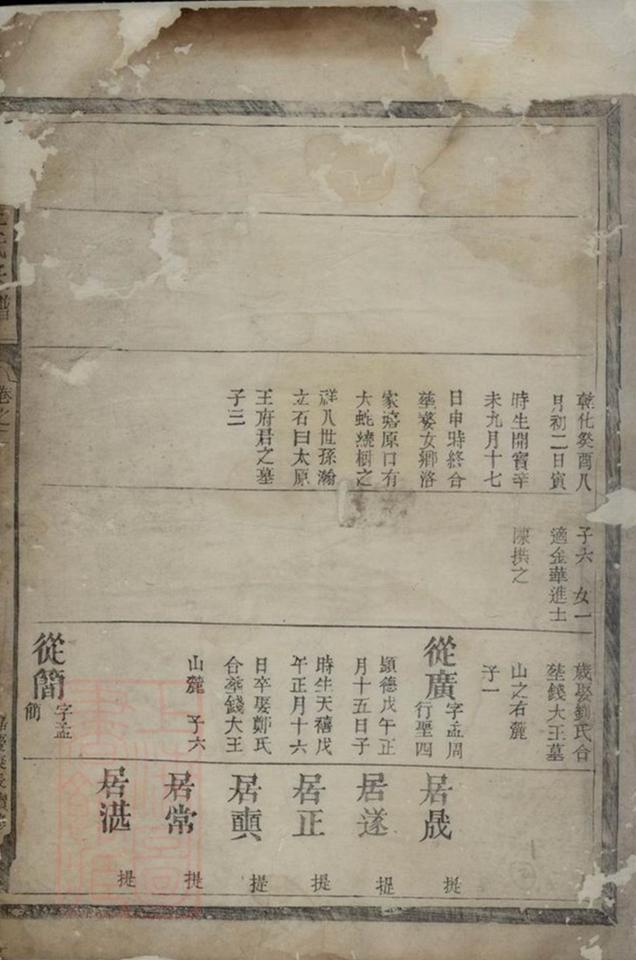 乾化癸酉八
月初二日寅
時生開寶辛
未九月十七
日申時終合
塟婺女鄉洛
家嬉原口有
大蛇繞棺之
祥八世孫瀚
立石曰太原
王府君之墓
子三
子六 女一
適金華進士
陳撰之
歲娶劉氏合
塟錢大王墓
山之右麓
子一
從廣 字孟周
行聖四
顯德戊午正
月十五日子
時生天禧戊
午正月十六
日卒娶鄭氏
合塟錢大王
山麓 子六
從簡 字孟
簡
居晟 提
居遂 提
居正 提
居 提
居常 提
居湛 提
卷之